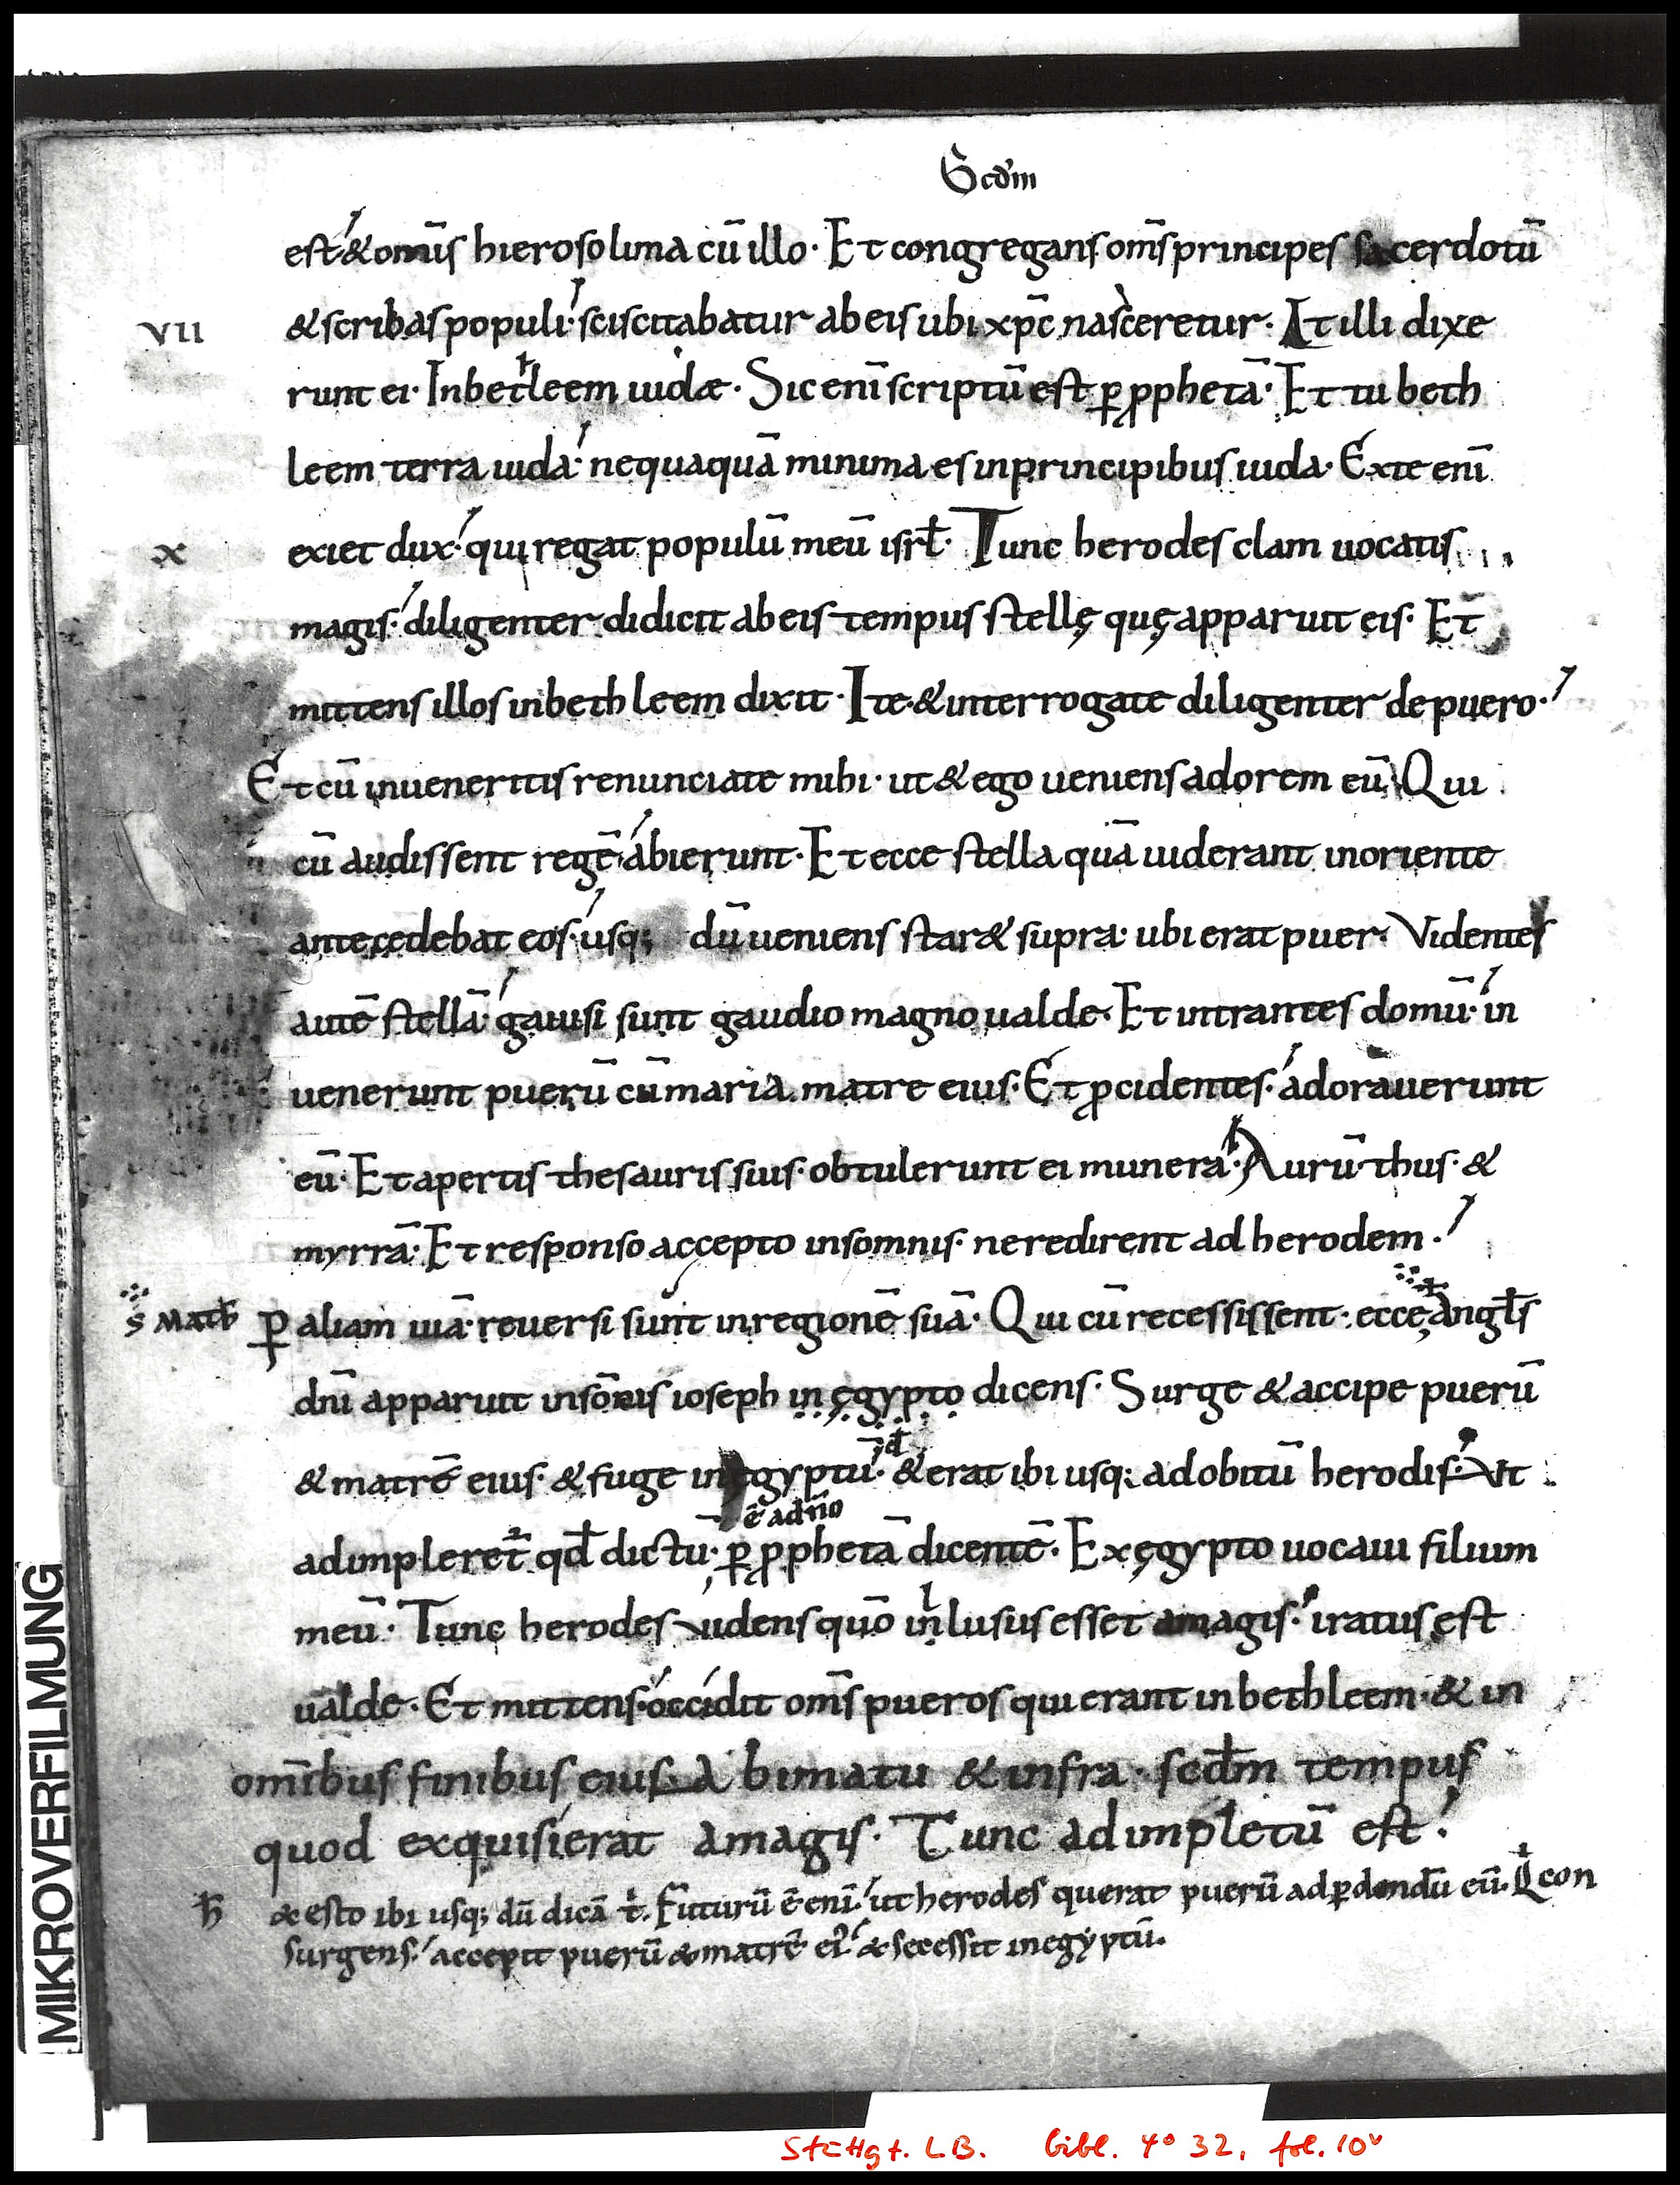 Scd̄m
est· & om̄is hierosolima cū illo· Et congregans om̄s principes sacerdotū
VII & scribas populi· sciscitabatur ab eis ubi xp̄c nasceretur· At illi dixe
runt ei· In bethleem iudæ· Sic eni̅ scriptū est ꝑ ꝓphetā· Et tu beth
leem terra iuda· nequaquā minima es in principibus iuda· Ex te eni̅
X exiet dux· qui regat populū meū isrƚ· Tunc herodes clam uocatis
magis· diligenter didicit ab eis tempus stellę quę apparuit eis· Et
mittens illos in bethleem dixit· Ite & interrogate diligenter de puero·
Et cū inueneritis renunciate mihi· ut & ego ueniens adorem eū· Qui
cū audissent regē· abierunt· Et ecce stella quā uiderant in oriente
antecedebat eos· usq; dū ueniens star& supra· ubi erat puer· Videntes
autē stellā· gauisi sunt gaudio magno ualde· Et intrantes domū· in
uenerunt puerū cū maria matre eius· Et ꝓcidentes· adorauerunt
eū· Et apertis thesauris suis· obtulerunt ei munera· Aurū· thus· &
myrrā· Et responso accepto in somnis· ne redirent ad herodem·
S Matħ ꝑ aliam uiā· reuersi sunt in regionē suā· Qui cū recessissent· ecce angƚs
dn̄i apparuit in sōnis ioseph in ęgypto dicens· Surge & accipe puerū
& matrē eius· & fuge in ęgyptū· đ & erat ibi usq; ad obitū herodis· Vt
ē a dn̄o
adimpleret̄ qđ dictū· ꝑ ꝓphetā dicentē· Ex ęgypto uocaui filium
meū· Tunc herodes uidens quō inlusus esset a magis· iratus est
ualde· Et mittens· occidit om̄s pueros qui erant in bethleem· & in
om̄ibus finibus eius· A bimatu & infra· secđm tempus
quod exquisierat a magis· Tunc adimpletū est·
ħ & esto ibi usq; dū dicā t̛· Futurū ē eni̅· ut herodes querat puerū ad ꝑdendū eū· Q̛ con
surgens· accepit puerū & matrē ei᾽· & secessit in egyptū·
MIKROVERFILMUNG
Stuttgt. LB. bibl. 4° 32, fol. 10ᵛ